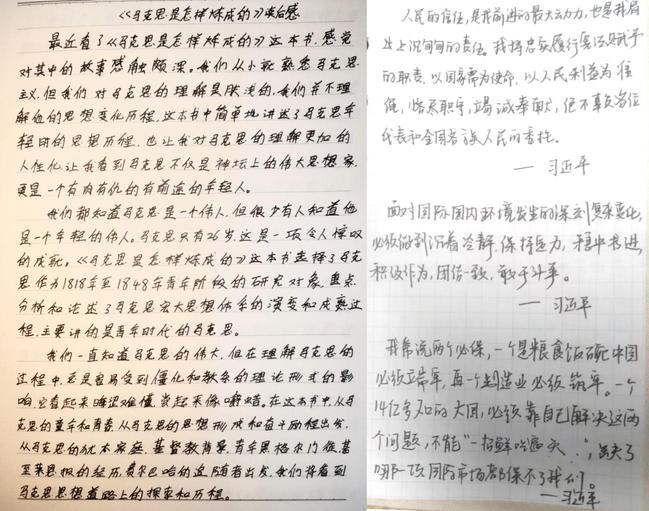 《马克思是怎样炼成的》读后感
最近看了《马克思是怎样炼成的》这本书,感觉
对其中的故事感触颇深。我们从小就熟悉马克思
主义,但我们对马克思的理解是肤浅的,我们并不理
解他的思想变化历程,这本书中简单地讲述了马克思年
轻时的思想历程,也让我对马克思的理解更加的
人性化,让我看到马克思不仅是神坛上的伟大思想家,
更是一个有肉有血的有前途的年轻人。
我们都知道马克思是一个伟人,但很少有人知道他
是一个年轻的伟人。马克思只有26岁,这是一项令人惊叹
的成就。《马克思是怎样炼成的》这本书选择了马克
思作为1818年至1848年青年阶段的研究对象,重点
分析和论述了马克思宏大思想体系的演变和成熟过
程,主要讲的是青年时代的马克思。
我们一直知道马克思的伟大,但在理解马克思的
过程中,总是容易受到僵化和教条的理论形式的影
响,它看起来晦涩难懂,尝起来像嚼蜡。在这本书中,从马
克思的童年和青春,从马克思的思想形成和奋斗历程出发,
从马克思的犹太家庭,基督教背景,青年黑格尔门徒,甚
至莱茵报的经历,费尔巴哈的追随者出发,我们将看到
马克思思想道路上的探索和历程。
人民的信任,是我前进的最大动力,也是我肩
上沉甸甸的责任。我将忠实履行宪法赋予
的职责,以国家需要为使命,以人民利益为准
绳,恪尽职守,竭诚奉献,绝不辜负各位
代表和全国各族人民的重托。
— 习近平
面对国际国内环境发生的深刻复杂变化,
必须做到沉着冷静,保持定力,稳中求进,
积极作为,团结一致,敢于斗争。
— 习近平
我常说两个必保,一个是粮食饭碗中国
必须端牢,再一个制造业必须筑牢。一个
14亿多人口的大国,必须靠自己解决这两
个问题,不能"一招鲜吃遍天",丢失了
哪一项国际市场都保不了我们。
— 习近平